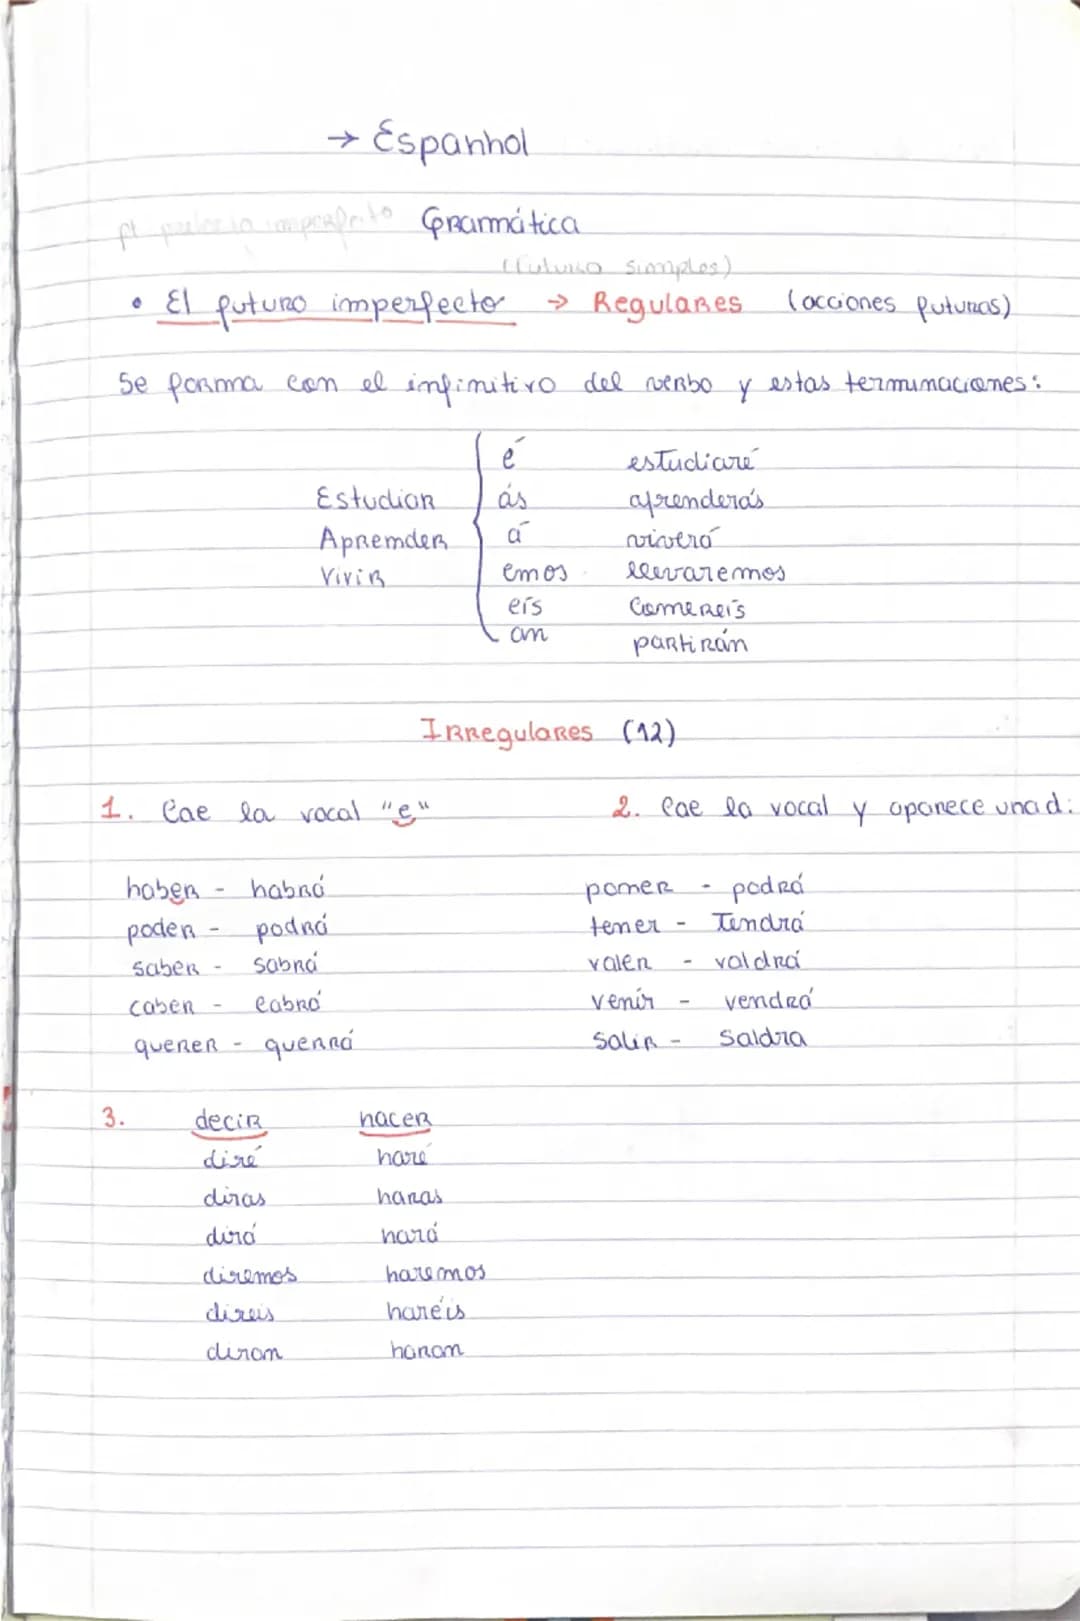 → Espanhol
Gramática
(futuro simples)
• El futuro imperfecto → Regulares (acciones futuras)
Se forma con el infinitivo del verbo y estas terminaciones:
é estudiaré
Estudiar ás aprenderás
Aprender á viverá
Vivir emos llevaremos
eís comereís
an partirán
Irregulares (12)
1. Cae la vocal "e" 2. Cae la vocal y aparece una d:
haber - habrá poner - podrá
poder - podrá tener - Tendrá
saber - sabrá valer - valdrá
caber - cabrá venir - vendrá
querer - querrá salir - saldra
3. decir hacer
diré haré
diras haras
dirá hará
diremos haremos
direis haréis
diran haran